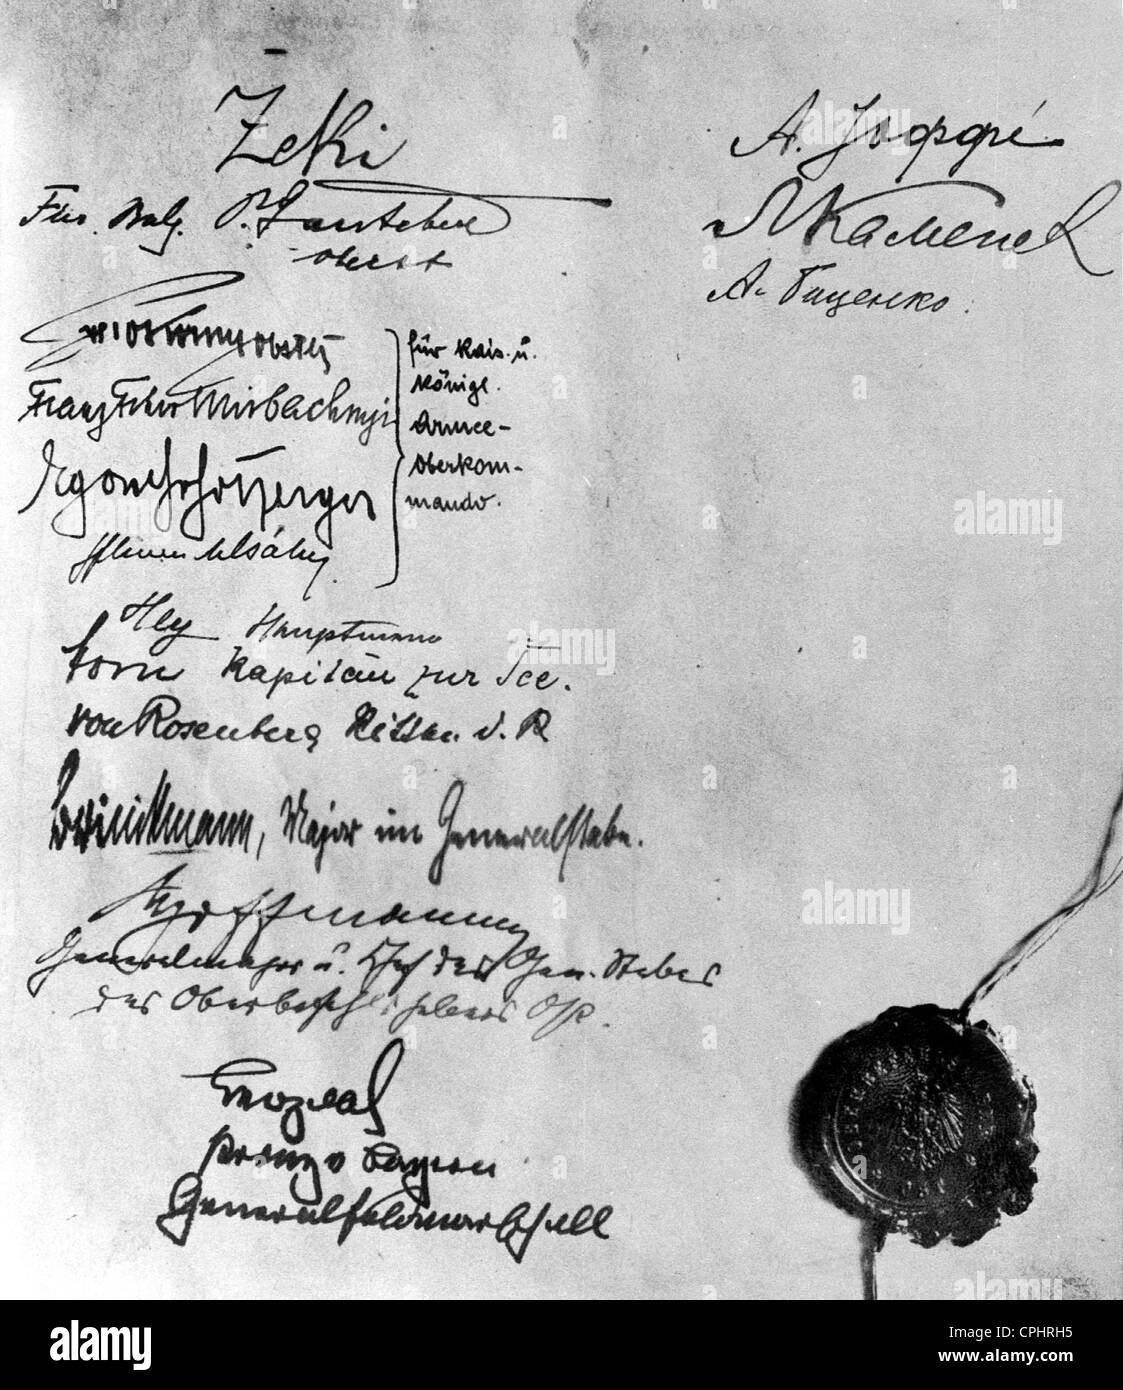 Zeki
Für Bulg. P. Gantschew
Oberst
Pokorny Obstlt
Franz Frhr Mirbach Mjr
für Kais. u.
Königl.
Armee-
Oberkom-
mando.
Hey Hauptmann
Horn Kapitän zur See.
von Rosenberg
Brinckmann, Major im Generalstabe.
Hoffmann
Generalmajor u. Chef des Gen. Stabes
des Oberbefehlshabers Ost.
Leopold
Prinz v Bayern
Generalfeldmarschall
А. Іоффе
Л Каменев
А. Биценко.
alamy
Image ID: CPHRH5
www.alamy.com